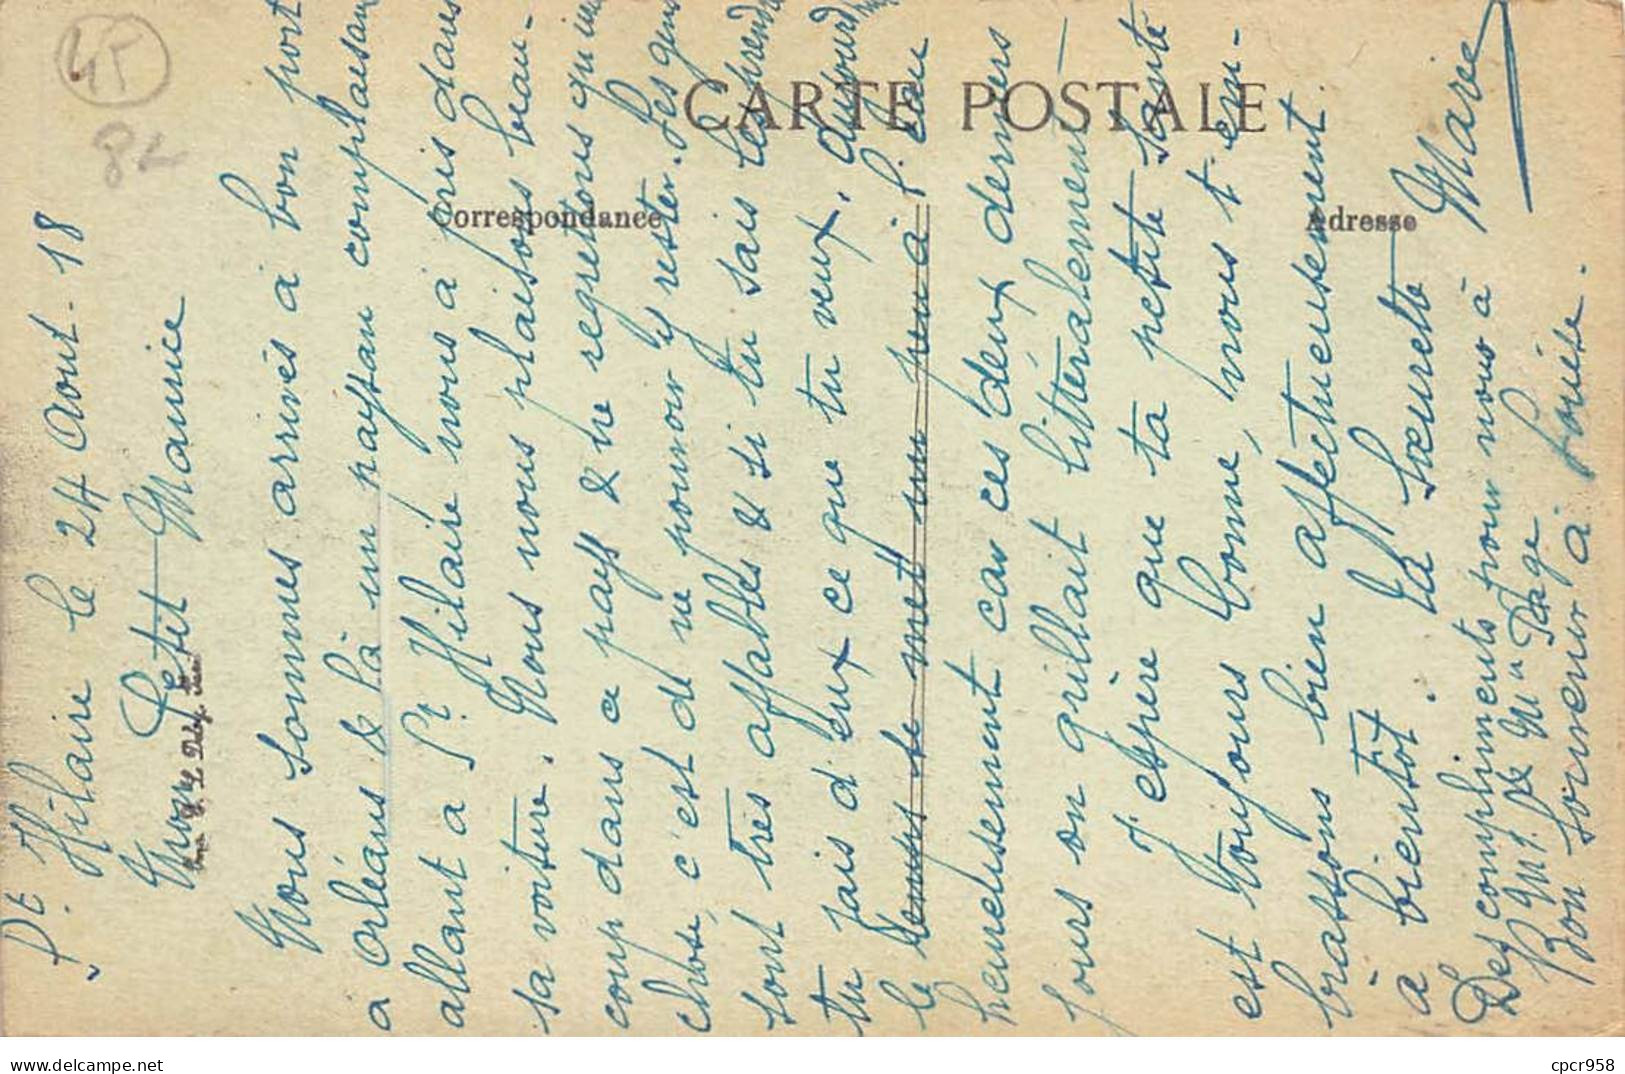 45
82
CARTE POSTALE
Correspondance
Adresse
St Hilaire le 24 Aout - 18
Mon Petit Maurice
Nous sommes arrivés à bon port
a Orléans & là un paysan complaisan
allant a St Hilaire nous à pris dans
sa voiture. Nous nous plaisons beau-
coup dans ce pays & ne regretons qu'une
chose, c'est de ne pouvoir y rester. Les gens
sont très affables & si tu sais les prendre
tu fais d'eux ce que tu veux. aujourd'hui
le temps se met un peu à l'eau
heureusement car ces deux derniers
jours on grillait litteralement
J'espère que ta petite santé
est toujours bonne, nous t'em-
brassons bien affectueusement.
à bientôt. ta Sœurette Marie
Des compliments pour nous à
Mr & Mme Page
Bon Souvenir à Louise.
cpcr958